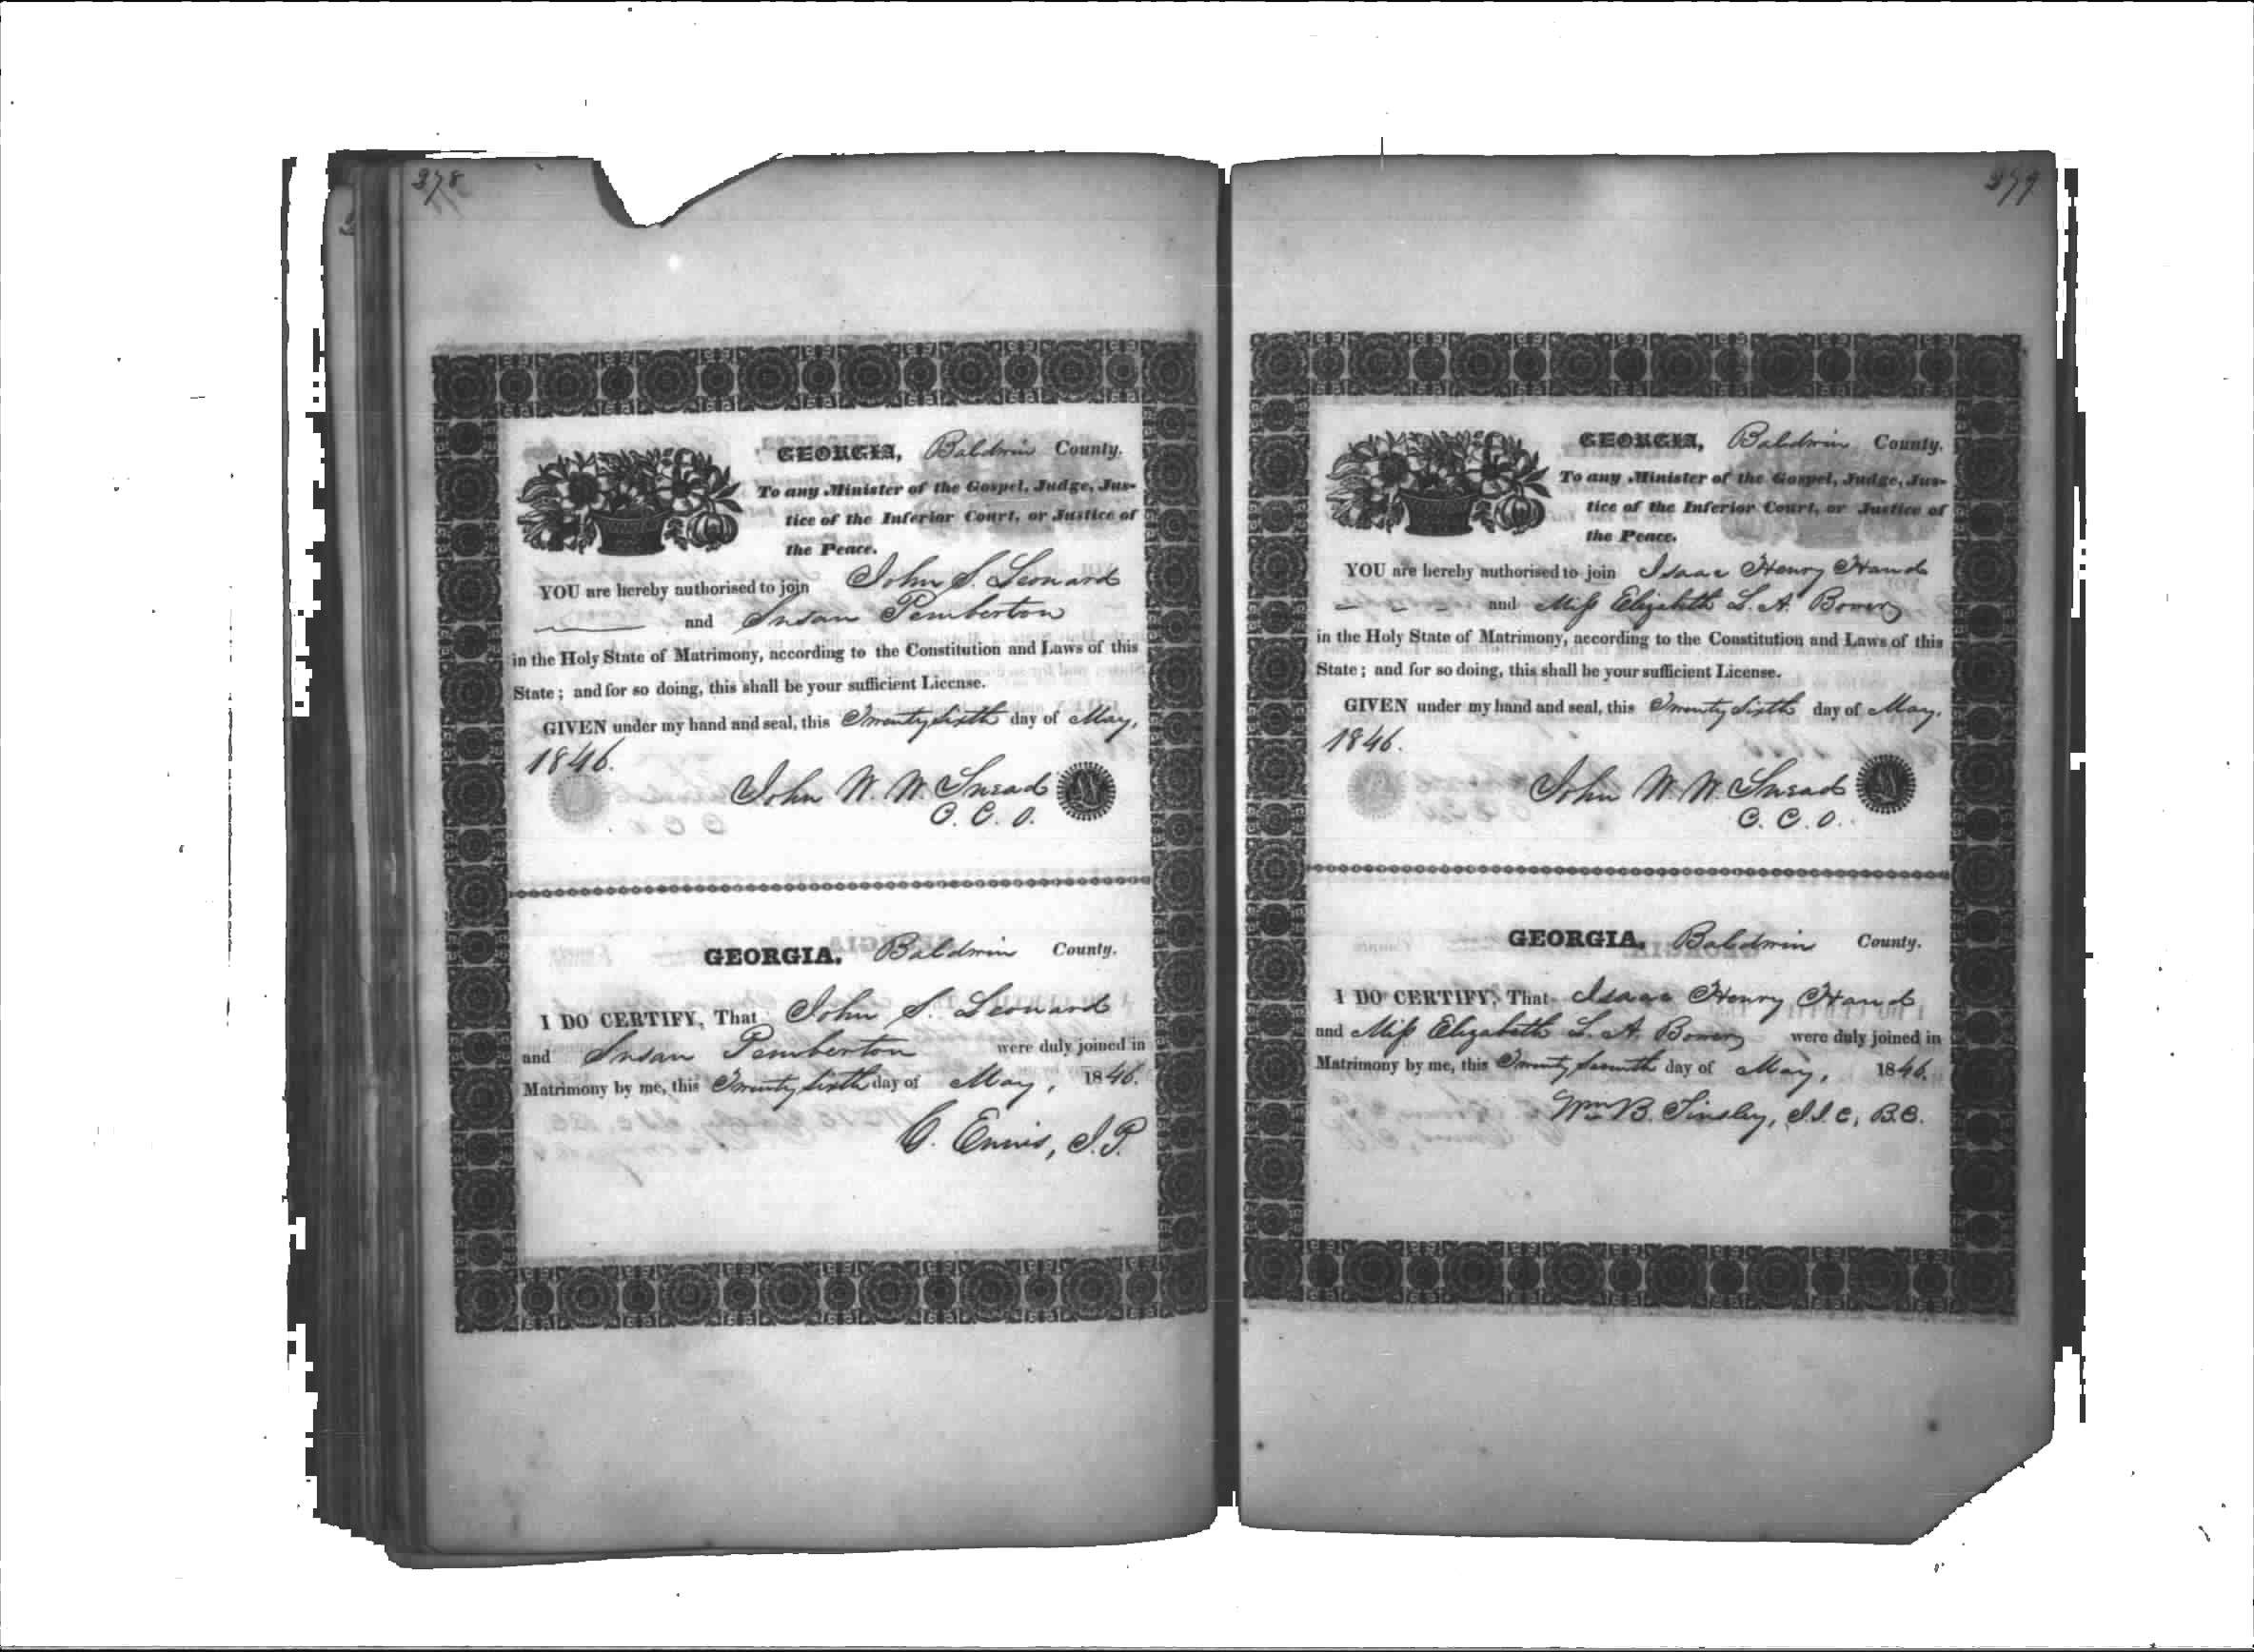 378
GEORGIA, Baldwin County.
To any Minister of the Gospel, Judge, Jus-
tice of the Inferior Court, or Justice of
the Peace.
YOU are hereby authorised to join John S. Leonard
and Susan Pemberton
in the Holy State of Matrimony, according to the Constitution and Laws of this
State; and for so doing, this shall be your sufficient License.
GIVEN under my hand and seal, this Twenty sixth day of May,
1846.
John W. W. Snead
C. C. O.
GEORGIA, Baldwin County.
I DO CERTIFY, That John S. Leonard
and Susan Pemberton were duly joined in
Matrimony by me, this Twenty sixth day of May, 1846.
C. Ennis, J.P.
379
GEORGIA, Baldwin County.
To any Minister of the Gospel, Judge, Jus-
tice of the Inferior Court, or Justice of
the Peace.
YOU are hereby authorised to join Isaac Henry Hand
and Miss Elizabeth L. A.
in the Holy State of Matrimony, according to the Constitution and Laws of this
State; and for so doing, this shall be your sufficient License.
GIVEN under my hand and seal, this Twenty sixth day of May,
1846.
John W. W. Snead
C. C. O.
GEORGIA, Baldwin County.
I DO CERTIFY, That Isaac Henry Hand
and Miss Elizabeth L. A. were duly joined in
Matrimony by me, this Twenty seventh day of May, 1846.
Wm B. Tinsley, J.I.C, B.C.